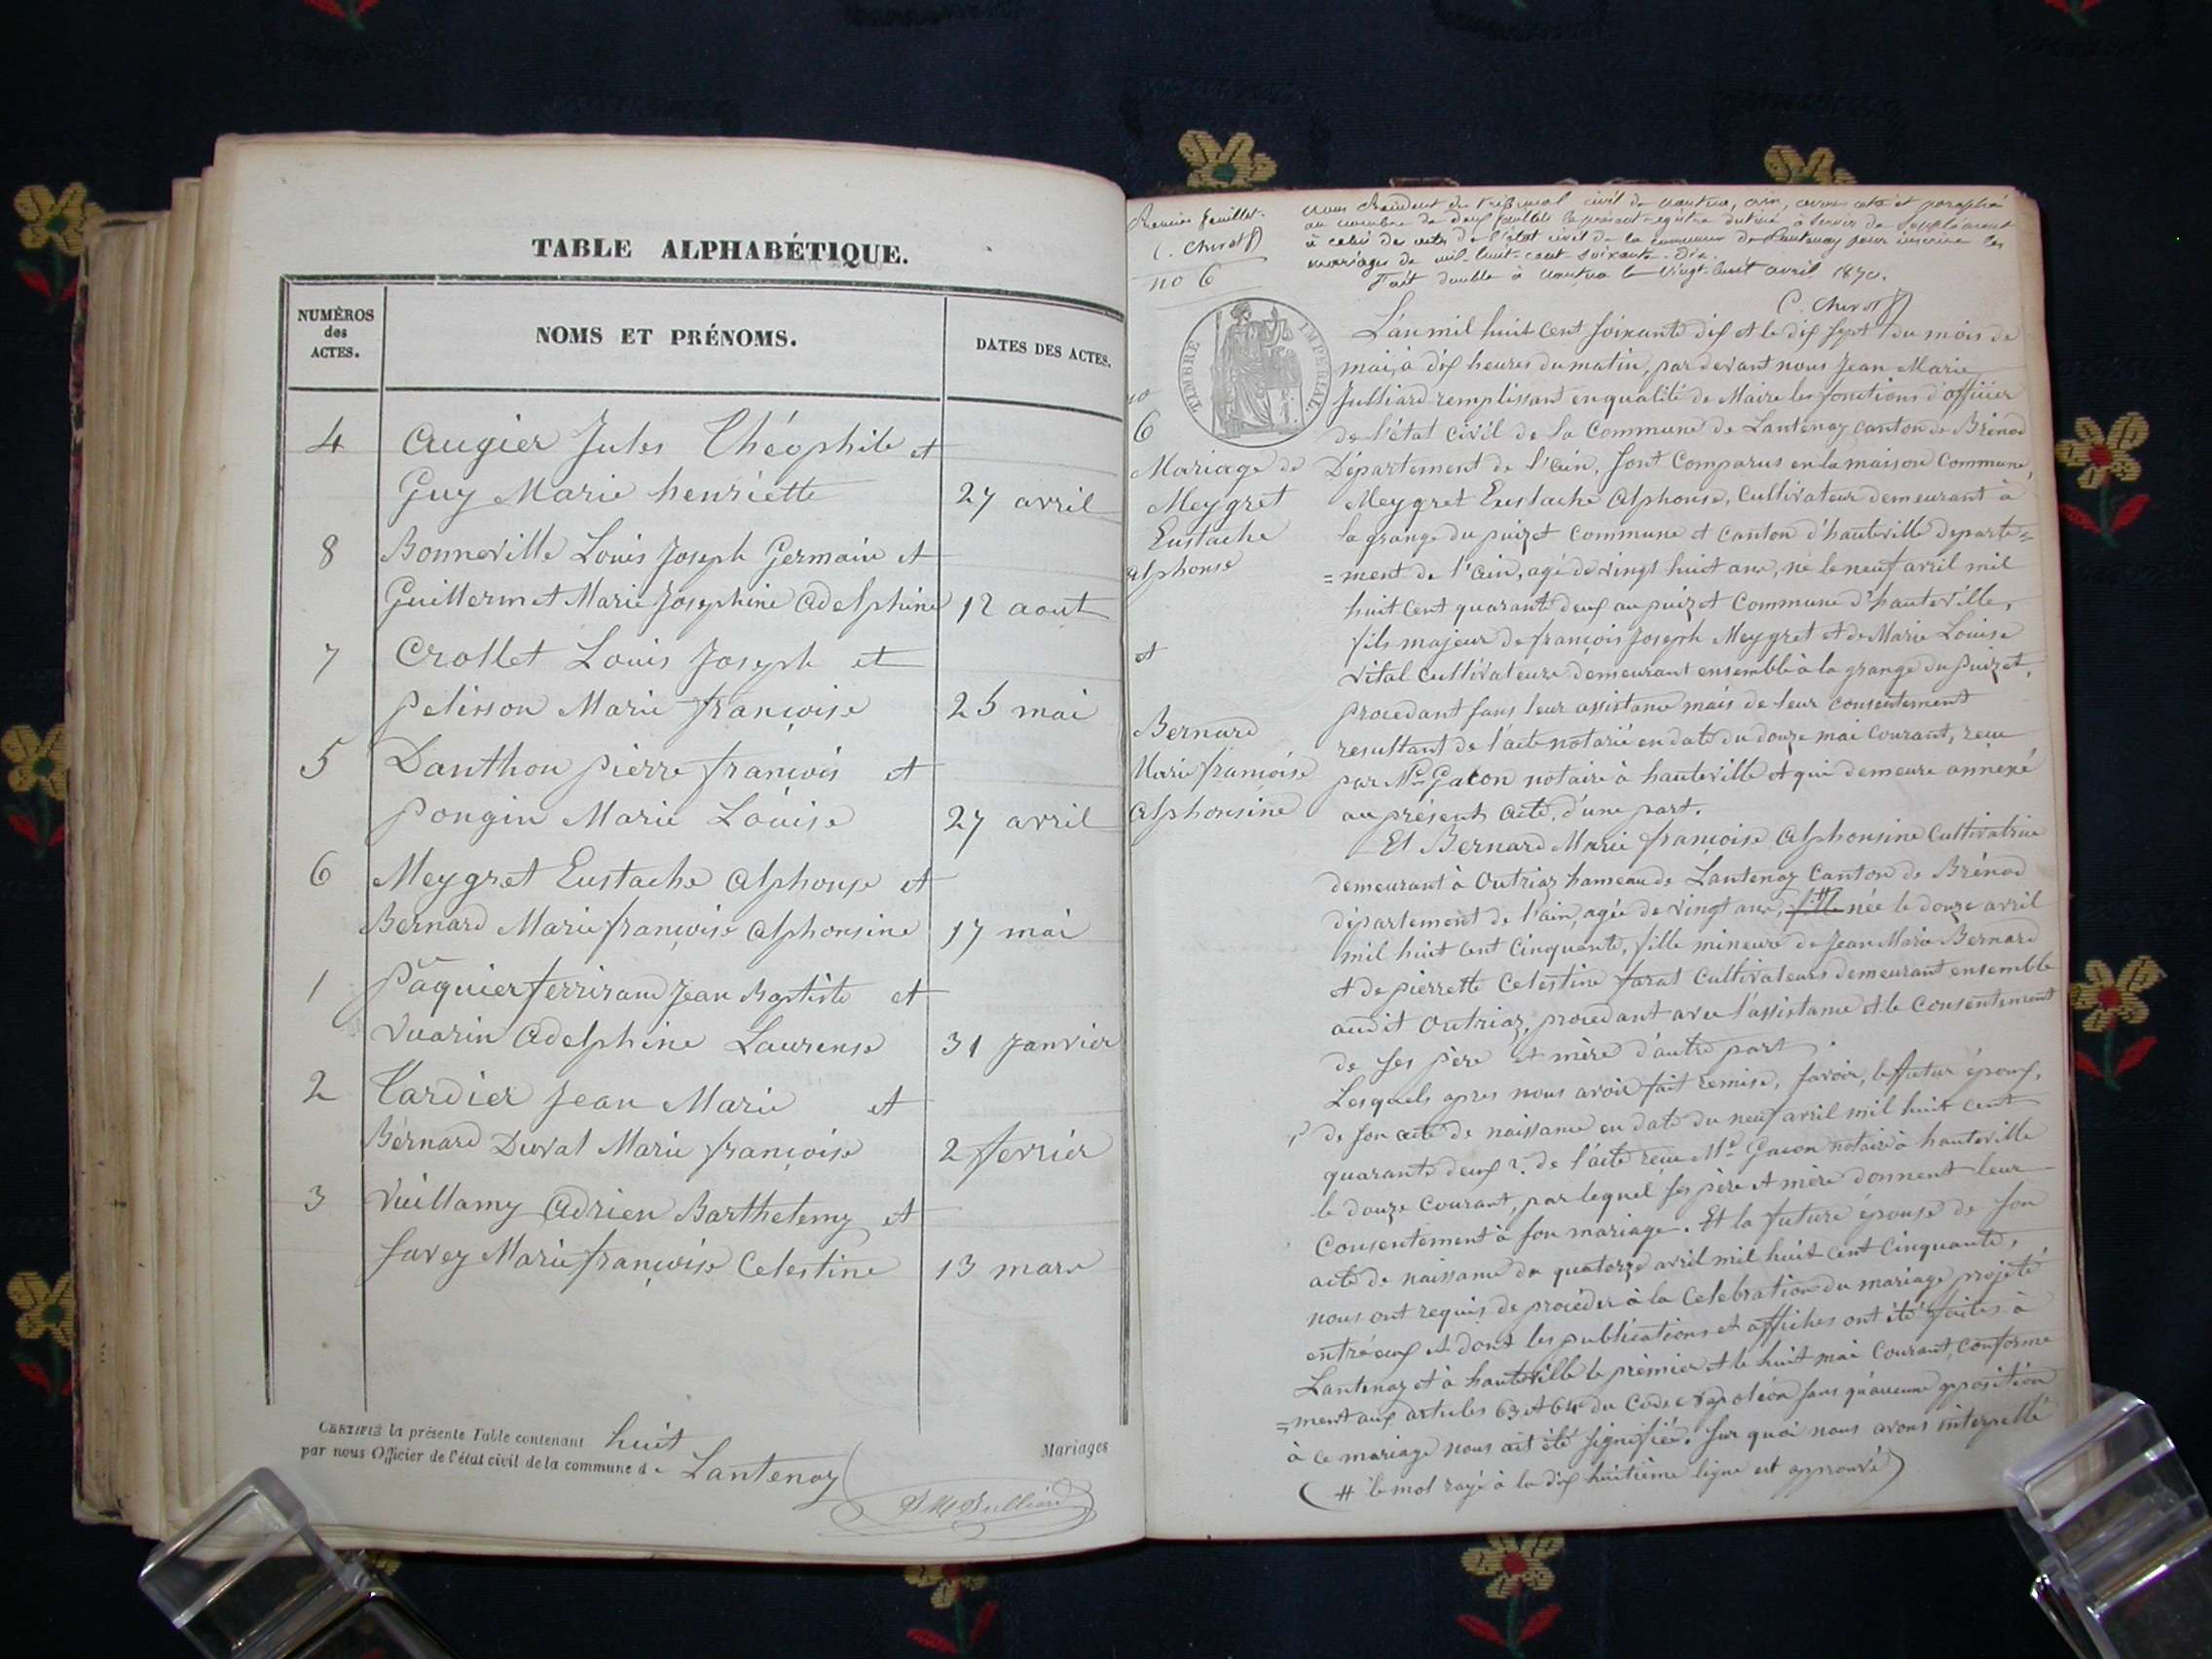 TABLE ALPHABÉTIQUE.
NUMÉROS
des
ACTES.
NOMS ET PRÉNOMS.
DATES DES ACTES.
4 Augier Jules Théophile et
Guy Marie henriette 27 avril
8 Bonneville Louis Joseph Germain et
Guillermet Marie Josephine adelphine 12 aout
7 Crollet Louis Joseph et
pelisson Marie françoise 25 mai
5 Danthon pierre françois et
pongin Marie Louise 27 avril
6 Meygret Eustache alphonse et
Bernard Marie françoise alphonsine 17 mai
1 Paquier ferrirand Jean Baptiste et
Vuarin adelphine Laurense 31 Janvier
2 Tardier Jean Marie et
Bernard Duvat Marie françoise 2 fevrier
3 Vuillamy adrien Barthelemy et
Savey Marie françoise Celestine 13 mars
CERTIFIÉ la présente Table contenant huit Mariages
par nous Officier de l'état civil de la commune de Lantenay
J M Julliard
Premier feuillet.
C. Chevot
no 6
Nous Président du Tribunal civil de Nantua, ain, avons coté et paraphé
au nombre de deux feuillets le présent registre destiné à servir de supplément
à celui des actes de l'état civil de la commune de Lantenay pour inscrire les
mariages de mil-huit-cent-soixante-dix.
Fait double à Nantua le vingt-huit avril 1870.
C. Chevot
TIMBRE IMPÉRIAL.
no
6
Mariage de
Meygret
Eustache
alphonse
et
Bernard
Marie françoise
alphonsine
L'an mil huit cent soixante dix et le dix sept du mois de
mai, à dix heures du matin, par devant nous Jean Marie
Julliard remplissant en qualité de Maire les fonctions d'officier
de l'état civil de la Commune de Lantenay canton de Brénod
Département de l'ain, sont Comparus en la maison Commune,
Meygret Eustache alphonse, Cultivateur demeurant à
la grange du puizet commune et canton d'hauteville departe=
=ment de l'ain, agé de vingt huit ans, né le neuf avril mil
huit cent quarante deux au puizet Commune d'hauteville,
fils majeur de françois Joseph Meygret et de Marie Louise
Vital Cultivateurs demeurant ensemble à la grange du puizet,
procedant sans leur assistance mais de leur consentement
resultant de l'acte notarié en date du douze mai Courant, reçu
par Me Gacon notaire à hauteville et qui demeure annexé
au présent acte, d'une part.
Et Bernard Marie françoise alphonsine Cultivatrice
demeurant à Outriaz hameau de Lantenay Canton de Brénod
département de l'ain, agée de vingt ans, fille # née le douze avril
mil huit cent cinquante, fille mineure de Jean Marie Bernard
et de pierrette Celestine farat Cultivateurs demeurant ensemble
audit Outriaz, procedant avec l'assistance et le Consentement
de ses père et mère d'autre part.
Lesquels apres nous avoir fait remise, savoir, le futur époux,
1° de son acte de naissance en date du neuf avril mil huit cent
quarante deux 2° de l'acte reçu Me Gacon notaire à hauteville
le douze Courant, par lequel ses père et mère donnent leur
Consentement à son mariage. Et la future épouse de son
acte de naissance du quatorze avril mil huit cent Cinquante,
nous ont requis de procéder à la Celebration du mariage projeté
entre eux et dont les publications et affiches ont été faites à
Lantenay et à hauteville le premier et le huit mai Courant, conforme
=ment aux articles 63 et 64 du Code Napoléon sans qu'aucune opposition
à ce mariage nous ait été signifiée. Sur quoi nous avons interpellé
(# le mot rayé à la dix huitième ligne est approuvé)